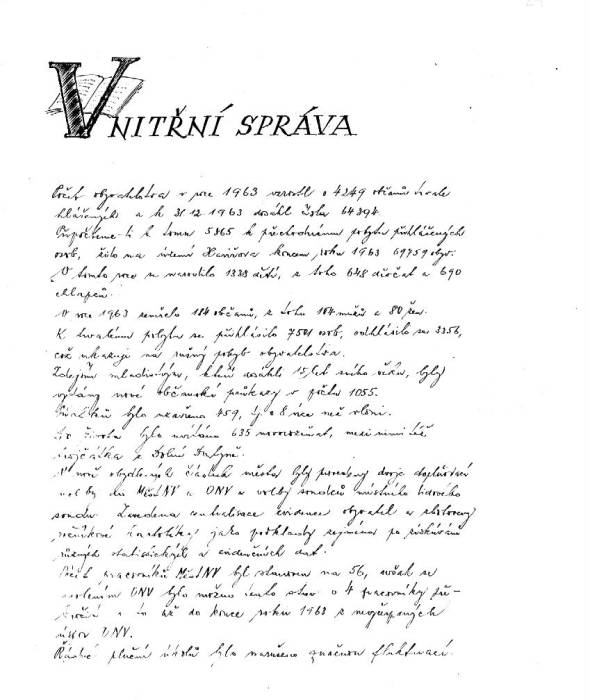 VNITŘNÍ SPRÁVA
Počet obyvatelstva v roce 1963 vzrostl o 4249 občanů trvale
hlášených a k 31.12.1963 dosáhl čísla 64394.
Připočteme-li k tomu 5865 k přechodnému pobytu přihlášených
osob, žilo na území Havířova koncem roku 1963 69759 obyv.
V tomto roce se narodilo 1338 dětí, z toho 648 děvčat a 690
chlapců.
V roce 1963 zemřelo 184 občanů, z toho 104 mužů a 80 žen.
K trvalému pobytu se přihlásilo 7501 osob, odhlásilo se 3356,
což ukazuje na značný pohyb obyvatelstva.
Zdejším mladistvým, kteří dosáhli 15 let svého věku, byly
vydány nové občanské průkazy v počtu 1055.
Sňatků bylo uzavřeno 459, tj. o 8 více než vloni.
Do života bylo uvítáno 635 novorozeňat, mezi nimi též
dvojčátka z Dolní Datyně.
V nově obydlených částech města byly provedeny dvoje doplňovací
volby do MěstNV a ONV a volby soudců místního lidového
soudu. Zavedena centralizace evidence obyvatel a
ročníkové kartotéky jako podklady zejména po získávání
různých statistických a evidenčních dat.
Počet pracovníků MěstNV byl stanoven na 56, avšak se
svolením ONV bylo možno tento stav o 4 pracovníky pře-
kročit a to až do konce roku 1963 z nevyčerpaných
úkolů ONV.
Řádné plnění úkolů bylo narušeno značnou fluktuací.